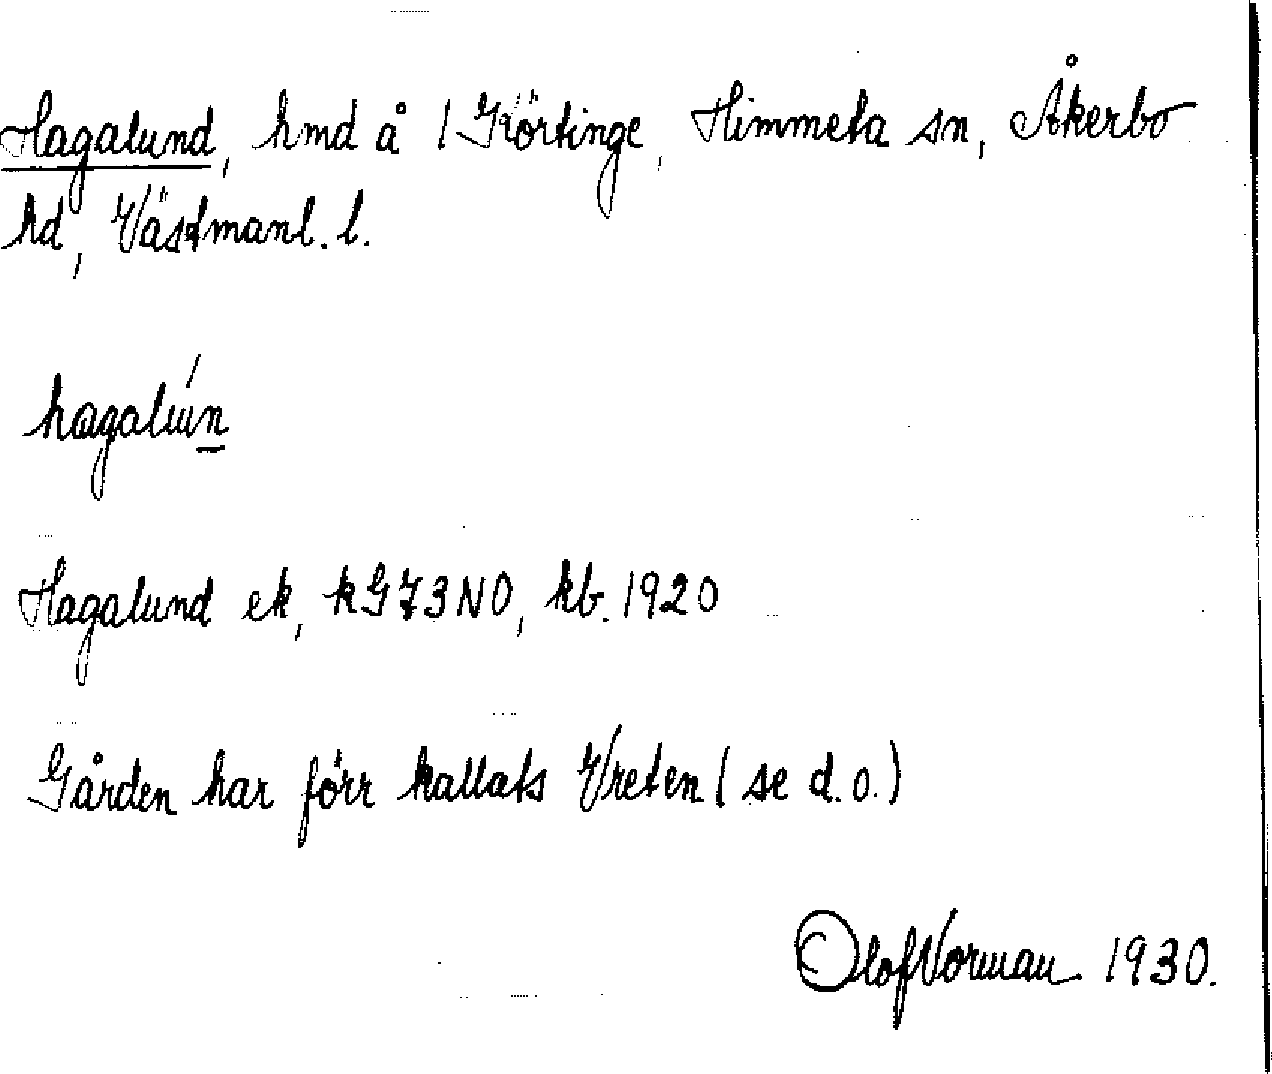 Hagalund, hmd å 1 Körtinge, Himmeta sn, Åkerbo
hd, Västmanl. l.
hagalún
Hagalund ek, kG73NO, kb. 1920
Gården har förr kallats Vreten (se d.o.)
Olof Norman 1930.